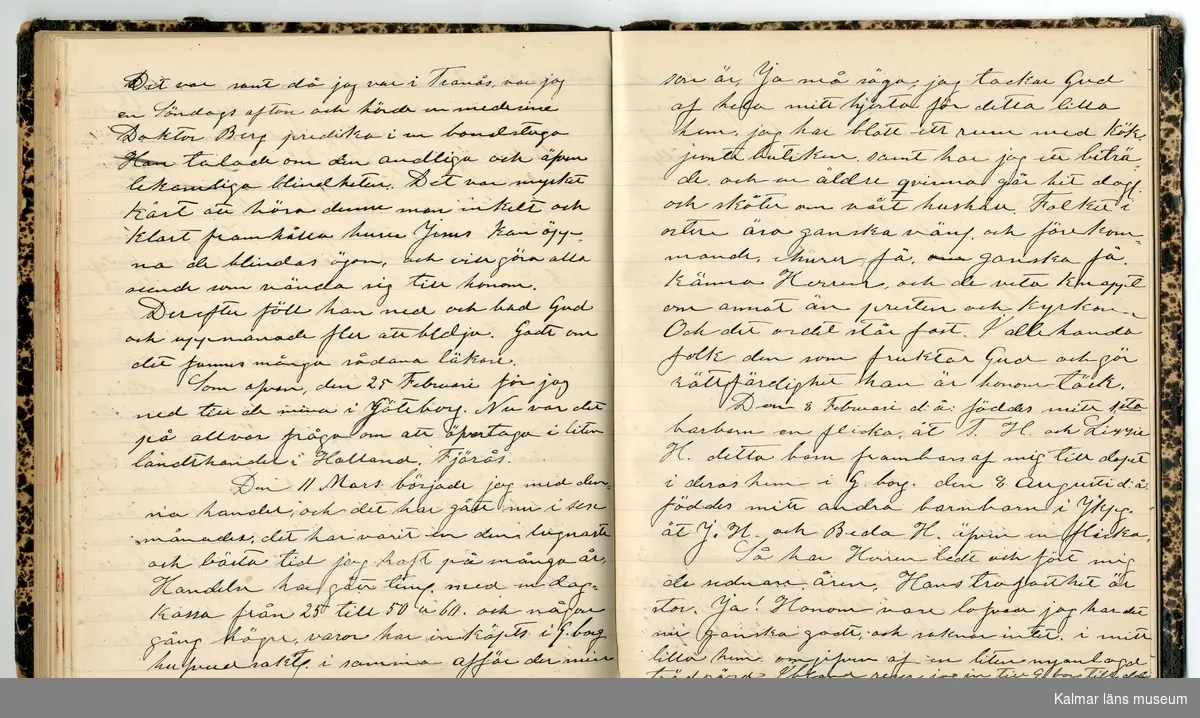 Det var sant då jag var i Tranås, var jag
en Söndags afton och hörde en medicine
Doktor Berg predika i en bondstuga
Han talade om den andliga och äfven
lekamliga blindheten. Det var mycket
kärt att höra denne man enkelt och
klart framhålla huru Jesus kan öpp-
na de blindas ögon, och vill göra alla
seende som vända sig till honom.
Derefter föll han ned och bad Gud
och uppmanade fler att bedja. Godt om
det funnes många sådana läkare.
Som ofvan, den 25 Februari för jag
ned till de mina i Göteborg. Nu var det
på allvar fråga om att öfvertaga i liten
landthandel i Halland, Fjärås.
Den 11 Mars började jag med den-
na handel, och det har gått nu i sex
månader, det har varit en den lugnaste
och bästa tid jag haft på många år,
Handeln har gått temg. med en dag-
kassa från 25 till 50 a 60. och någon
gång högre, varor har inköpts i G.borg
hufvudsakl. i samma affär der min
som är, Ja må säga, jag tackar Gud
af hela mitt hjerta för detta lilla
hem, jag har blott ett rum med Kök
jemte butiken, samt har jag ett biträ-
de, och en äldre qvinna går hit dagl.
och sköter om vårt hushåll. Folket i
orten äro ganska vänl. och förekom-
mande, ehuru få, ganska få,
känna Herren, och de veta knappt
om annat än presten och kyrkan.
Och det ordet står fast. I allehanda
folk den som fruktar Gud och gör
rättfärdighet han är honom täck.
Den 8 Februari d: å: föddes mitt 1sta
barbarn en flicka, åt T. H. och Lizzie
H. detta barn frambars af mig till dopet
i deras hem i G. borg. den 8 Augusti d: å:
föddes mitt andra barnbarn i Jkpg.
åt J. H. och Beda H. äfven en flicka,
Så har Herren ledt och fört mig
de sednare åren, Hans trofasthet är
stor. Ja! Honom vare lofven jag har det
nu ganska godt, och saknar intet, i mitt
lilla hem, omgifven af en liten nyanlagd
trädgård. Ibland reser jag in till G.borg till de
Kalmar läns museum